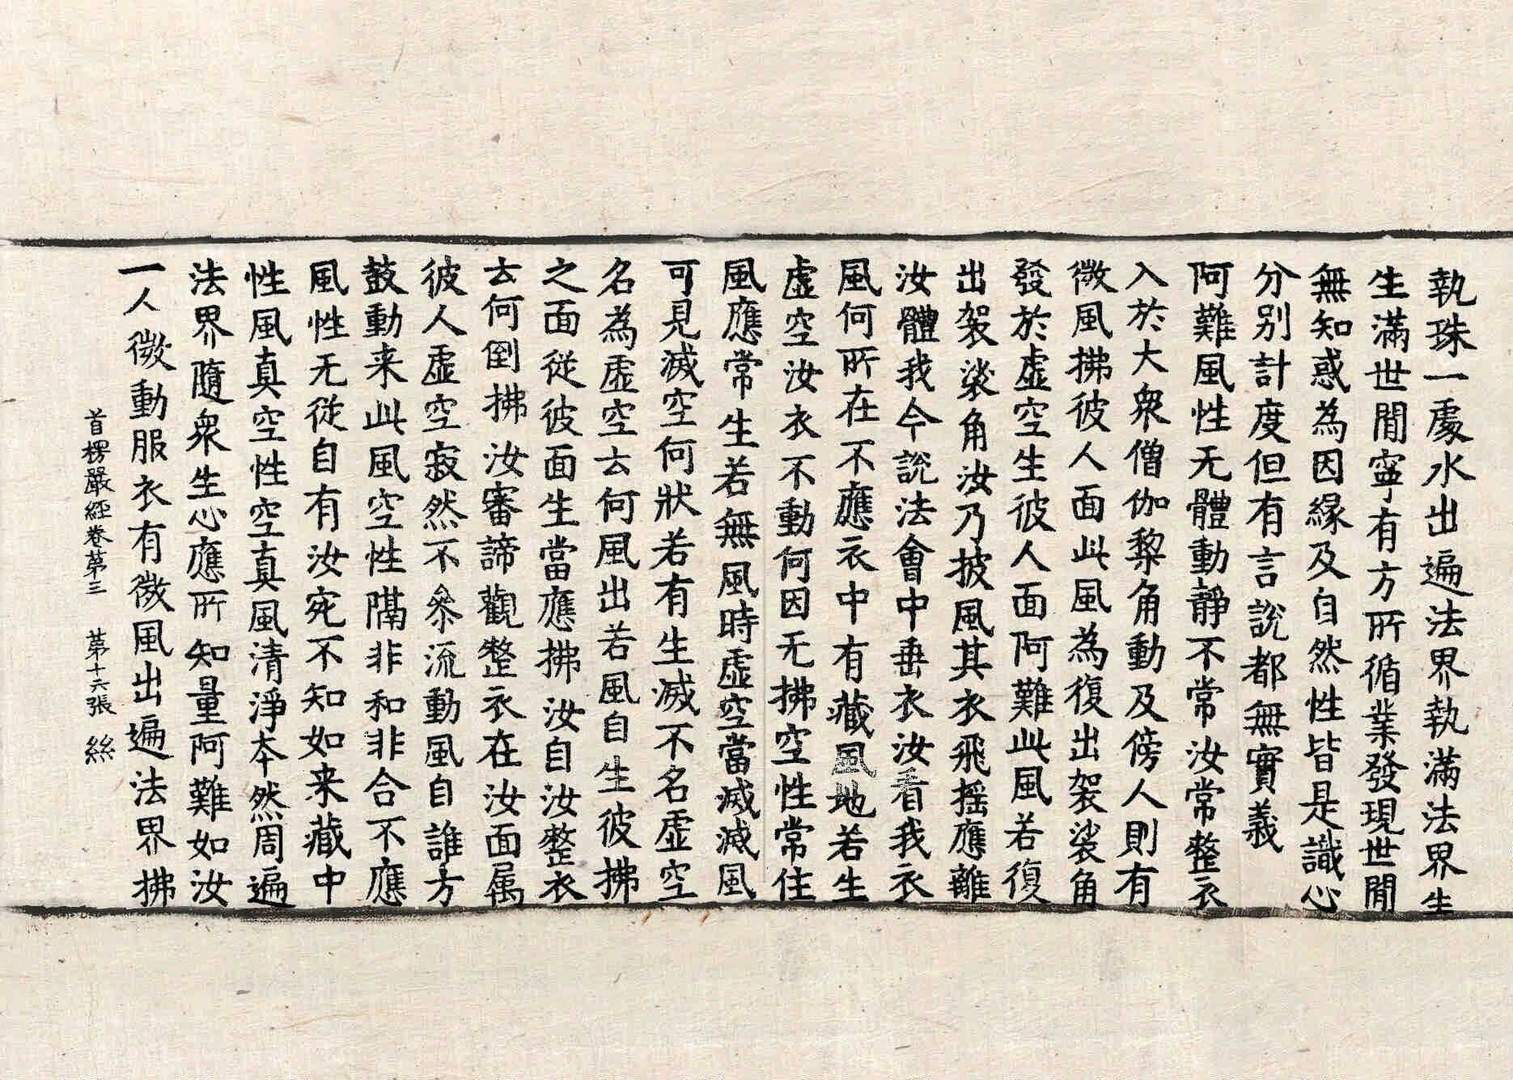 執珠一處水出遍法界執滿法界生
生滿世間寧有方所循業發現世間
無知惑為因緣及自然性皆是識心
分別計度但有言說都無實義
阿難風性无體動靜不常汝常整衣
入於大衆僧伽黎角動及傍人則有
微風拂彼人面此風為復出袈裟角
發於虛空生彼人面阿難此風若復
出袈裟角汝乃披風其衣飛搖應離
汝體我今說法會中垂衣汝看我衣
風何所在不應衣中有藏風地若生
虛空汝衣不動何因无拂空性常住
風應常生若無風時虛空當滅滅風
可見滅空何狀若有生滅不名虛空
名為虛空云何風出若風自生彼拂
之面從彼面生當應拂汝自汝整衣
云何倒拂汝審諦觀整衣在汝面属
彼人虛空寂然不叅流動風自誰方
鼓動来此風空性隔非和非合不應
風性无從自有汝宛不知如来藏中
性風真空性空真風清淨本然周遍
法界隨衆生心應所知量阿難如汝
一人微動服衣有微風出遍法界拂
首楞嚴經卷第三 第十六張 絲